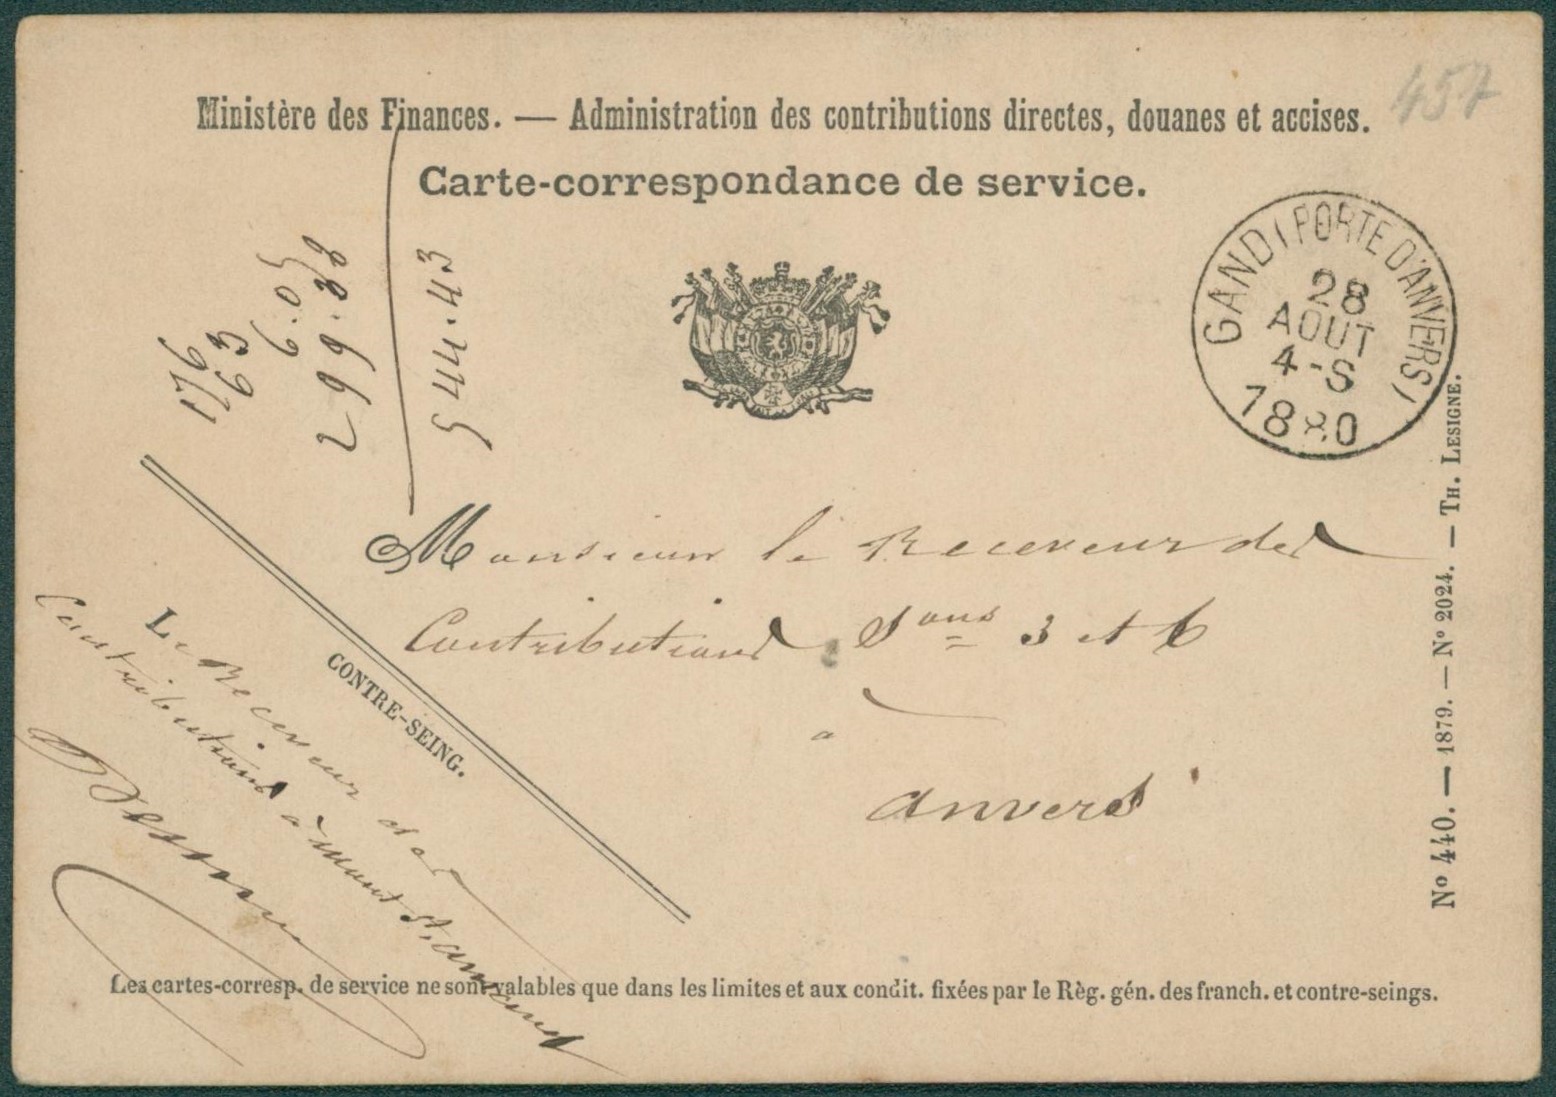 457
Ministère des Finances. — Administration des contributions directes, douanes et accises.
Carte-correspondance de service.
GAND (PORTE D'ANVERS)
28
AOUT
4-S
1880
176
63
6.05
299.38
544.43
Monsieur le Receveur des
Contributions Sons 3 et 6
à
Anvers
CONTRE-SEING.
Le Receveur des
Contributions à Mont St. Amand
Les cartes-corresp. de service ne sont valables que dans les limites et aux condit. fixées par le Règ. gén. des franch. et contre-seings.
No 440. — 1879. — No 2024. — Th. Lesigne.